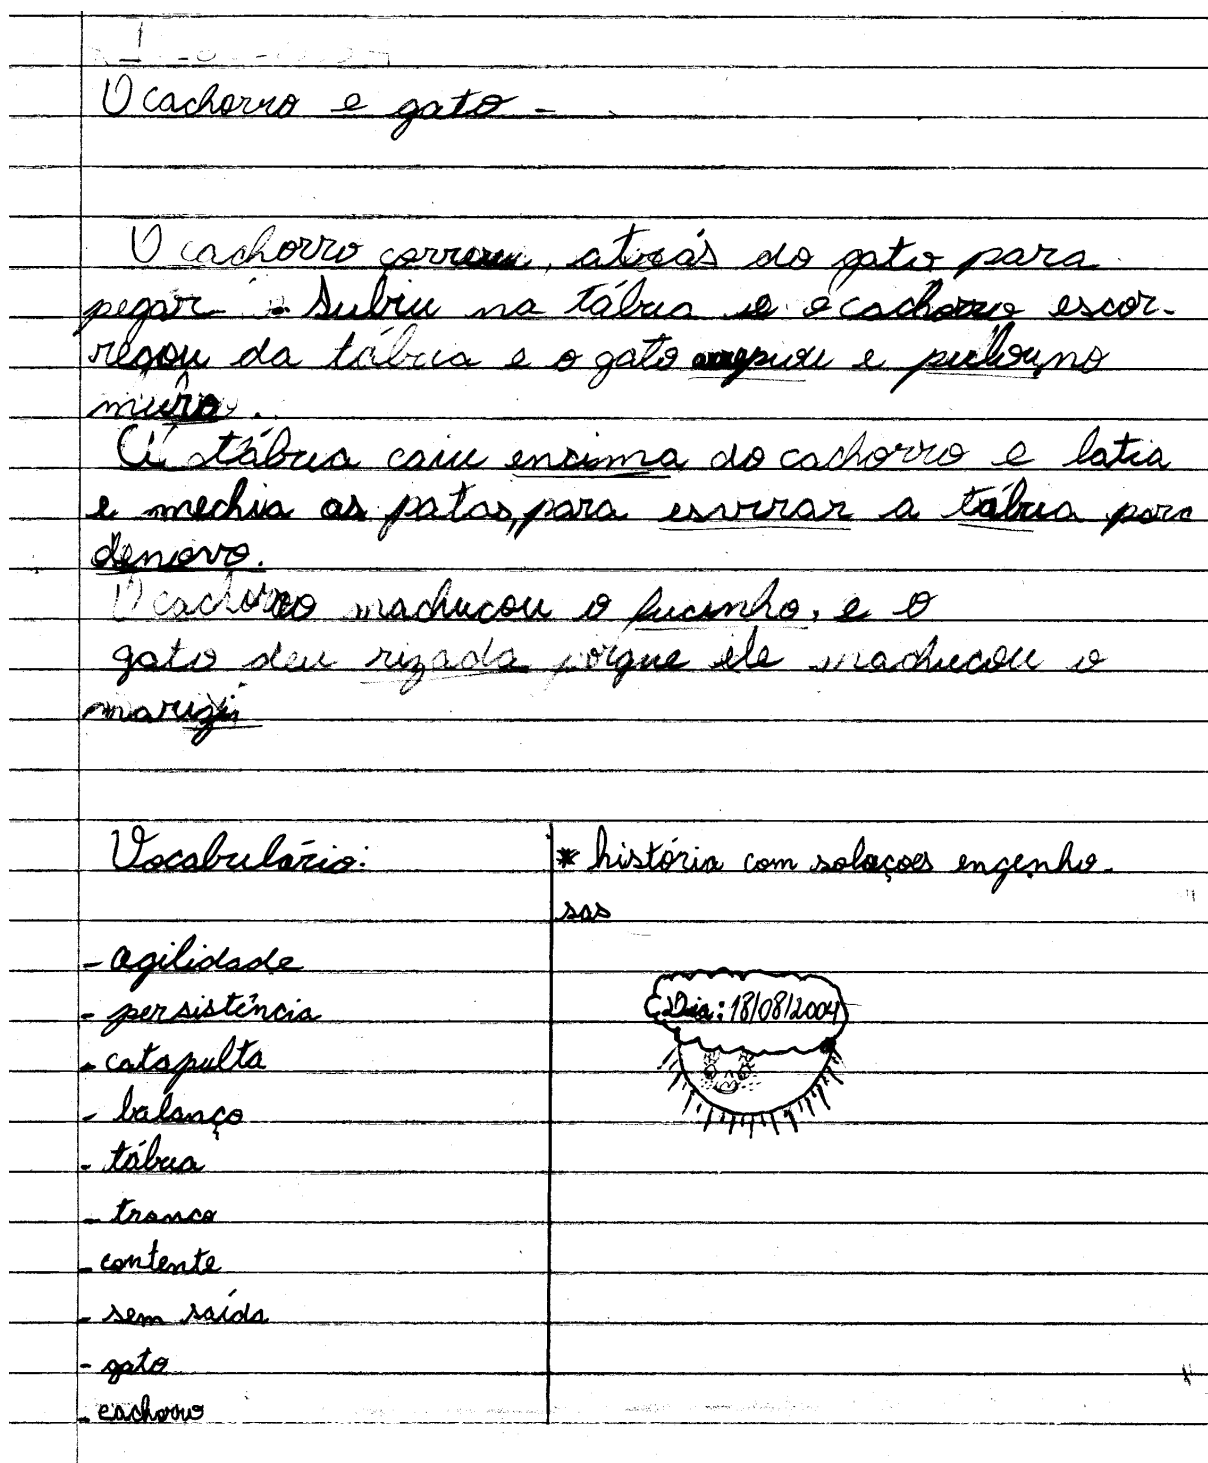 O cachorro e gato -
O cachorro correu, atrás do gato para
pegar. Subiu na tábua e o cachorro escor-
regou da tábua e o gato e pulou no
muro.
A tábua caiu encima do cachorro e latia
e mechia as patas, para esvirar a tábua para
denovo.
O cachorro machucou o fucinho, e o
gato deu rizada porque ele machucou o
narizi
Vocabulário:
- agilidade
- persistência
- catapulta
- balanço
- tábua
- tranco
- contente
- sem saída
- gato
- cachorro
* história com soluçoes engenho-
sas
Dia: 18/08/2004